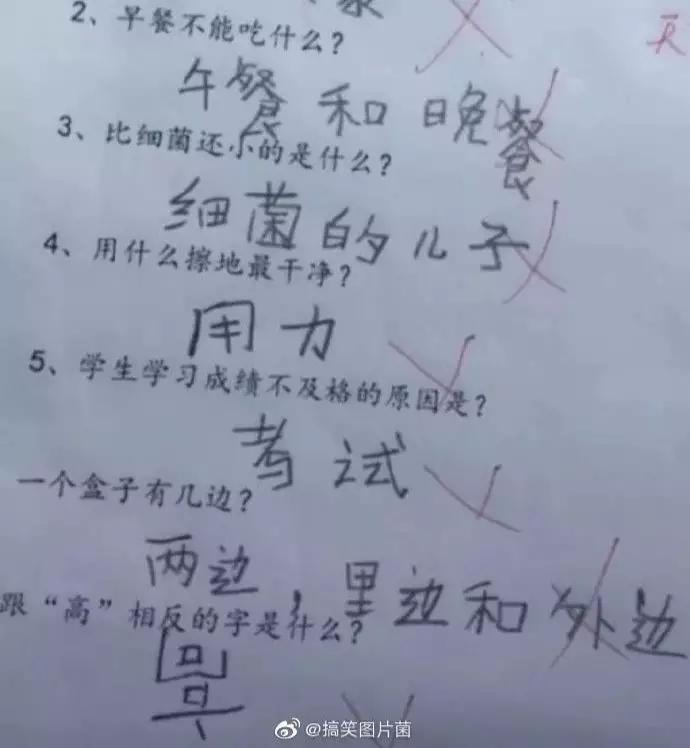 2、早餐不能吃什么？
午餐和晚餐
3、比细菌还小的是什么？
细菌的儿子
4、用什么擦地最干净？
用力
5、学生学习成绩不及格的原因是？
考试
一个盒子有几边？
两边，里边和外边
跟“高”相反的字是什么？
@搞笑图片菌